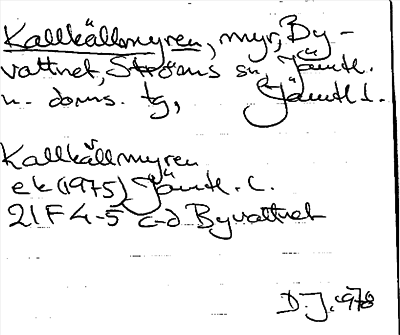 Kallkällmyren, myr, By-
vattnet, Ströms sn, Jämtl.
n. doms. tg, Jämtl l.
Kallkällmyren
ek (1975) Jämtl. C.
21F 4-5 c-d Byvattnet
D.J. 1978